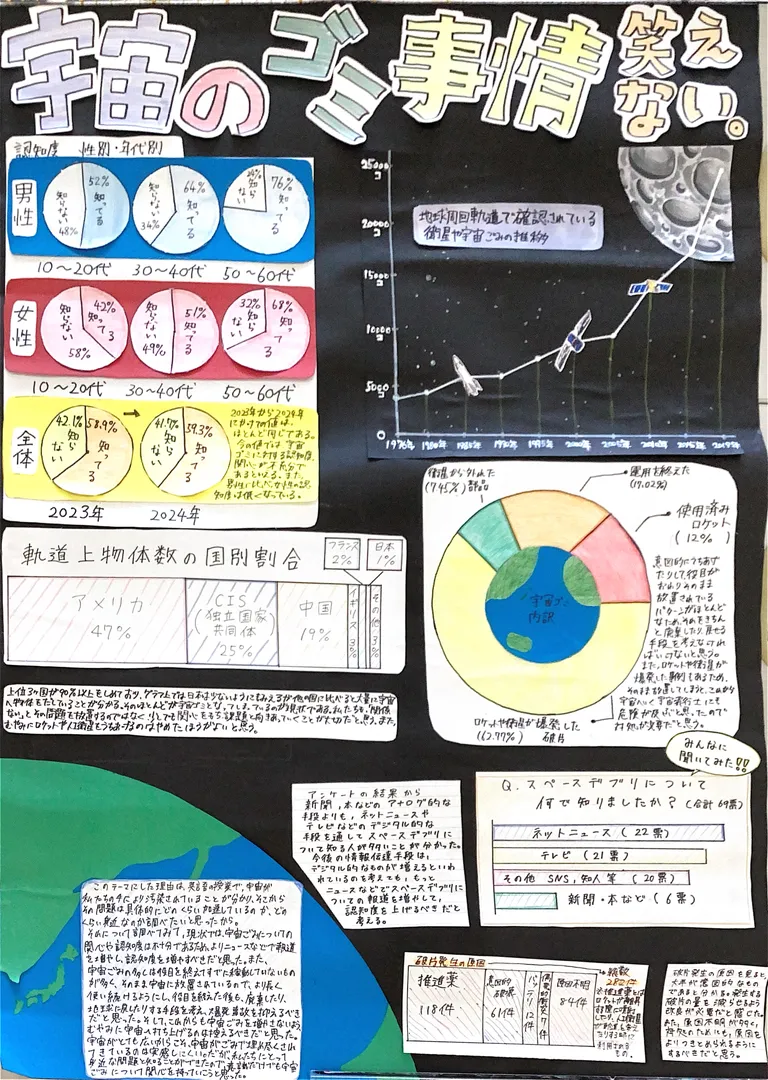 宇宙のゴミ事情笑えない。
認知度 性別・年代別
男性
52% 知ってる
知らない 48%
64% 知ってる
知らない 34%
24% 知らない
76% 知ってる
10～20代 30～40代 50～60代
女性
42% 知ってる
知らない 58%
51% 知ってる
知らない 49%
32% 知らない
68% 知ってる
10～20代 30～40代 50～60代
全体
42.1% 知らない
58.9% 知ってる
41.7% 知らない
59.3% 知ってる
2023年 2024年
2023年から2024年
にかけての値は、
ほとんど同じである。
今の値では宇宙
ゴミに対する認知度、
関心が不十分で
あるといえる。また、
男性に比べ女性の認
知度は低くなっている。
地球周回軌道で確認されている
衛星や宇宙ごみの推移
25000コ
20000コ
15000コ
10000コ
5000コ
0
1976年 1980年 1985年 1990年 1995年 2000年 2005年 2010年 2015年 2019年
軌道上物体数の国別割合
フランス 2%
日本 1%
アメリカ
47%
CIS
(独立国家
共同体)
25%
中国
19%
イギリス 3%
その他 3%
上位3か国が90%以上をしめており、グラフ上では日本は少ないようにみえるが他の国に比べると大量に宇宙
へ物体をだしていることが分かる。そのほとんどが宇宙ゴミとなってしまっているのが現状である。私たちも、関係
ない。とその問題を放置するのではなく、少しでも関心をもち、課題と向きあっていくことが大切だと思う。また、
むやみにロケットや人工衛星をうちあげるのはやめたほうがよいと思う。
衛星から外れた
(7.45%) 部品
運用を終えた
(17.02%)
使用済み
ロケット
(12%)
宇宙ゴミ
内訳
ロケットや衛星が爆発した
(62.77%) 破片
意図的にうちあげ
たりして役目が
おわりそのまま
放置されている
パターンがほとんど
なため、それをきちん
と廃棄したり、戻せる
手段を考えなけれ
ばいけないと思う。
また、ロケットや衛星が
爆発した事例もあるため、
そのまま放置してしまうと、これから
宇宙へいく宇宙飛行士にも
危険が及ぶと思ったので
対処が必要だと思う。
みんなに
聞いてみた!!
Q. スペースデブリについて
何で知りましたか？(合計69票)
ネットニュース (22票)
テレビ (21票)
その他 SNS,知人等 (20票)
新聞・本など (6票)
アンケートの結果から
新聞,本などのアナログ的な
手段よりも、ネットニュースや
テレビなどのデジタル的な
手段を通してスペースデブリに
ついて知る人が多いことが分かった。
今後の情報伝達手段は、
デジタル的なものが増えるといわ
れているのも考えても、もっと
ニュースなどでスペースデブリに
ついての報道を増やして、
認知度を上げるべきだと
考える。
このテーマにした理由は、英語の授業で、宇宙が
私たちの手により汚染されていることが分かり、そこから
その問題は具体的にどのくらい加速しているのか、どの
くらい身近なのかを調べたいと思ったから。
それについて調べてみて、現状では、宇宙ごみについての
関心や認知度は不十分であるため、よりニュースなどで報道
を増やし、認知度を増やすべきだと思った。また、
宇宙ごみの多くは役目を終えすでに稼動していないもの
が多く、そのまま宇宙に放置されているので、より長く
使い続けるようにし、役目を終えた後も、廃棄したり、
地球に戻したりする手段を考え、爆発事故を抑えるべき
だと思った。そして、これからも宇宙ごみを増やさないよう
むやみに宇宙へ打ち上げるのは控えるべきだと思った。
宇宙がとても広いがらこそ、宇宙がごみで埋め尽くされ
てきているのは実感しにくい。だが、私たちにとって
身近な問題と知ることができたので、意識だけでも宇宙
ごみについて関心を持っていこうと思った。
破片発生の原因
推進薬
118件
意図的
破壊
61件
バッテリ 12件
偶発的衝突 7件
原因不明
84件
総数
282件
破片発生の原因を見ると、
大半が意図的なもの
であると分かる。発生する
破片の量を減らせるよう
改良が必要だと感じた。
また、原因不明が多く、
対処のためにも、原因を
よりつきとめられるように
するべきだと思う。